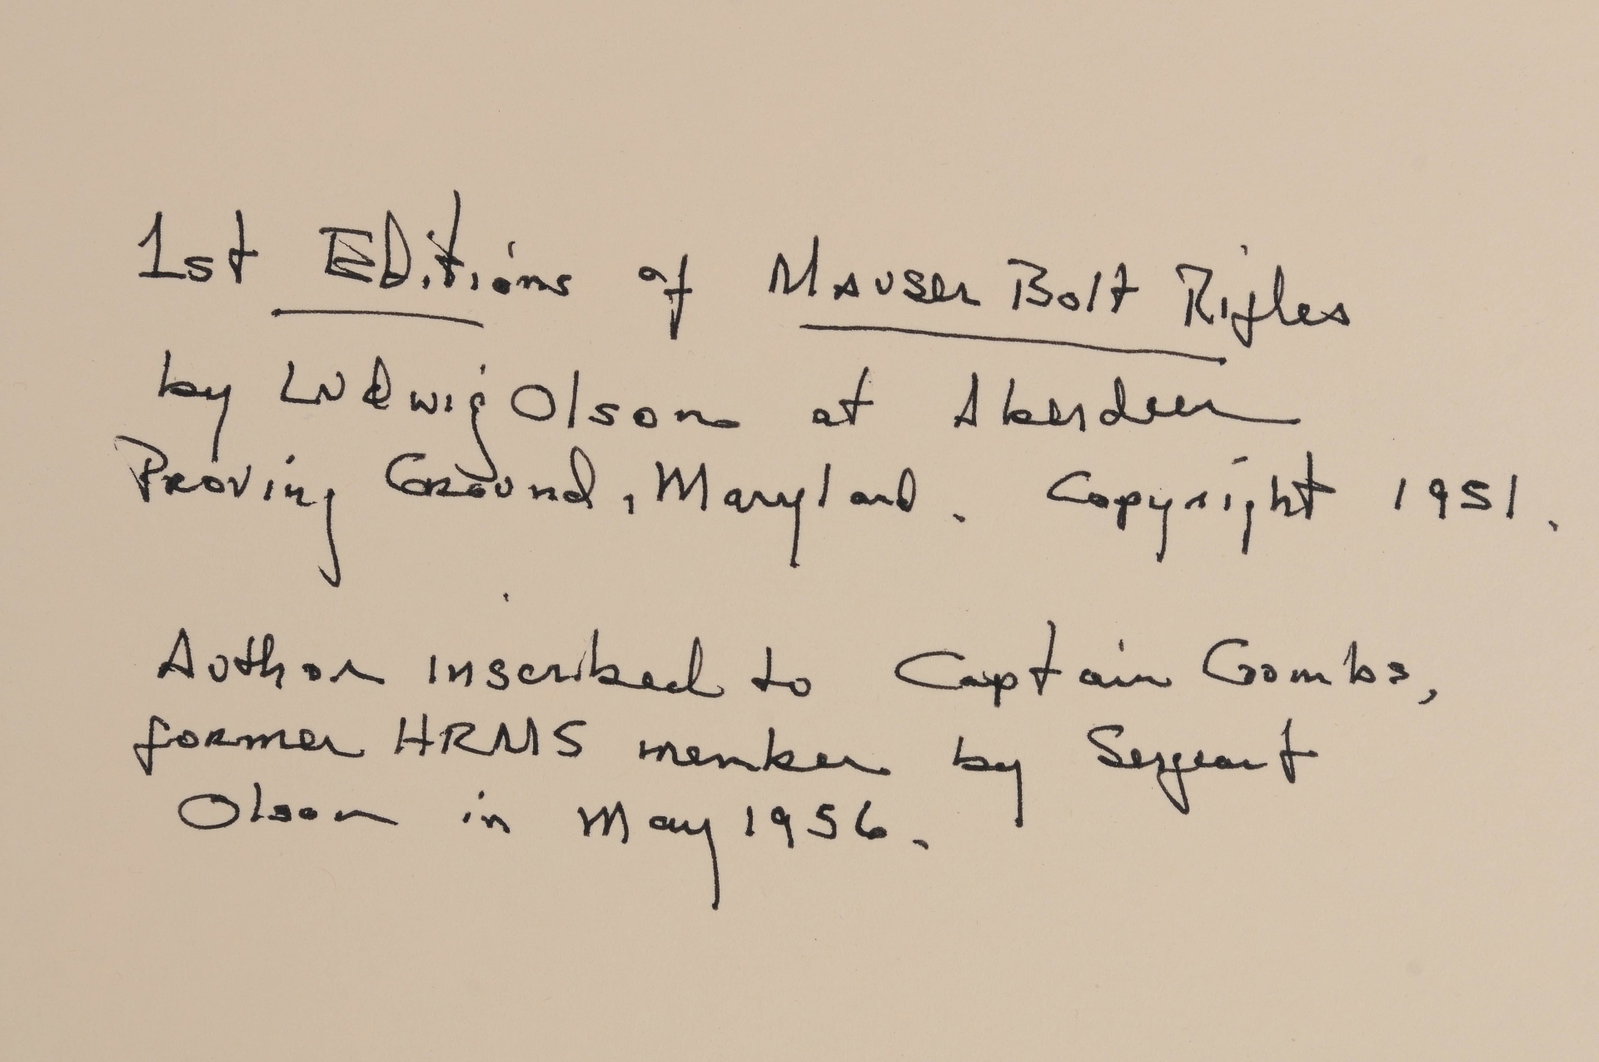 1st Editions of Mauser Bolt Rifles
by Ludwig Olson at Aberdeen
Proving Ground, Maryland. Copyright 1951.
Author inscribed to Captain Combs,
former HRMS member by Sergeant
Olson in May 1956.